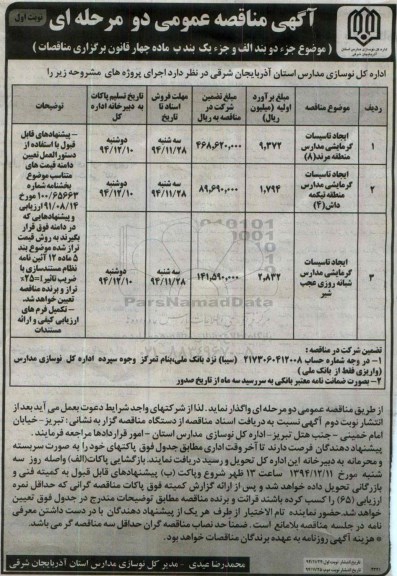 آگهی مناقصه عمومی دو مرحله ای
نوبت اول
(موضوع جزء دو بند الف و جزء یک بند ب ماده چهار قانون برگزاری مناقصات)
اداره کل نوسازی مدارس استان آذربایجان شرقی در نظر دارد اجرای پروژه های مشروحه زیر را
ردیف
موضوع مناقصه
مبلغ برآورد اولیه (میلیون ریال)
مبلغ تضمین شرکت در مناقصه به ریال
مهلت فروش اسناد تا تاریخ
تاریخ تسلیم پاکات به دبیرخانه اداره کل
توضیحات
۱
ایجاد تاسیسات گرمایشی مدارس منطقه مرند(۸)
۹,۳۷۲
۴۶۸,۶۲۰,۰۰۰
سه شنبه ۹۴/۱۱/۲۸
دوشنبه ۹۴/۱۲/۱۰
۲
ایجاد تاسیسات گرمایشی مدارس منطقه تیکمه داش(۴)
۱,۷۹۴
۸۹,۶۹۰,۰۰۰
سه شنبه ۹۴/۱۱/۲۸
دوشنبه ۹۴/۱۲/۱۰
۳
ایجاد تاسیسات گرمایشی مدارس شبانه روزی عجب شیر
۲,۸۳۲
۱۴۱,۵۹۰,۰۰۰
سه شنبه ۹۴/۱۱/۲۸
دوشنبه ۹۴/۱۲/۱۰
- پیشنهادهای قابل
قبول با استفاده از
دستورالعمل تعیین
دامنه قیمت های
متناسب موضوع
بخشنامه شماره
۱۰۰/۶۵۶۶۳ مورخ
۹۱/۰۸/۱۴ ارزیابی
و پیشنهادهایی که
در دامنه فوق قرار
بگیرند به روش قیمت
تراز شده موضوع بند
۵ ماده ۱۲ آئین نامه
نظام مستندسازی با
ضریب تاثیر i=۲۵%
تراز و برنده مناقصه
تعیین خواهد شد.
- تکمیل فرم های
ارزیابی کیفی و ارائه
مستندات
ParsNamadData
تضمین شرکت در مناقصه :
۱- در وجه شماره حساب ۲۱۷۳۰۶۰۴۱۲۰۰۸ (سیبا) نزد بانک ملی،بنام تمرکز وجوه سپرده اداره کل نوسازی مدارس
(واریزی فقط از بانک ملی)
۲- بصورت ضمانت نامه معتبر بانکی به سررسید سه ماه از تاریخ صدور
از طریق مناقصه عمومی دو مرحله ای واگذار نماید. لذا از شرکتهای واجد شرایط دعوت بعمل می آید بعد از
انتشار نوبت دوم آگهی نسبت به دریافت اسناد مناقصه از دستگاه مناقصه گزار به نشانی : تبریز-خیابان
امام خمینی - جنب هتل تبریز-اداره کل نوسازی مدارس استان - امور قراردادها مراجعه فرمایند .
پیشنهاد دهندگان فرصت دارند تا آخر وقت اداری مطابق جدول فوق پاکتهای خود را به صورت سربسته
و محرمانه به دبیرخانه این اداره کل تحویل و رسید دریافت نمایند. بازگشایی پاکات(الف) واصله روز سه
شنبه مورخ ۱۳۹۴/۱۲/۱۱ ساعت ۱۳ ظهر شروع و پاکت (ب) پیشنهادهای قابل قبول به کمیته فنی و
بازرگانی تحویل داده خواهد شد و پس از ارائه گزارش کمیته فوق پاکات مناقصه گرانی که حداقل نمره
ارزیابی (۶۵) را کسب کرده باشند قرائت و برنده مناقصه مطابق توضیحات مندرج در جدول فوق تعیین
خواهد شد.حضور نماینده تام الاختیار از طرف هر یک از پیشنهاد دهندگان با در دست داشتن معرفی
نامه در جلسه مناقصه بلامانع است. ضمنا حد نصاب مناقصه گران حداقل سه مناقصه گر می باشد.
* هزینه آگهی روزنامه به عهده برندگان مناقصات خواهد بود.
محمدرضا عبدی - مدیر کل نوسازی مدارس استان آذربایجان شرقی